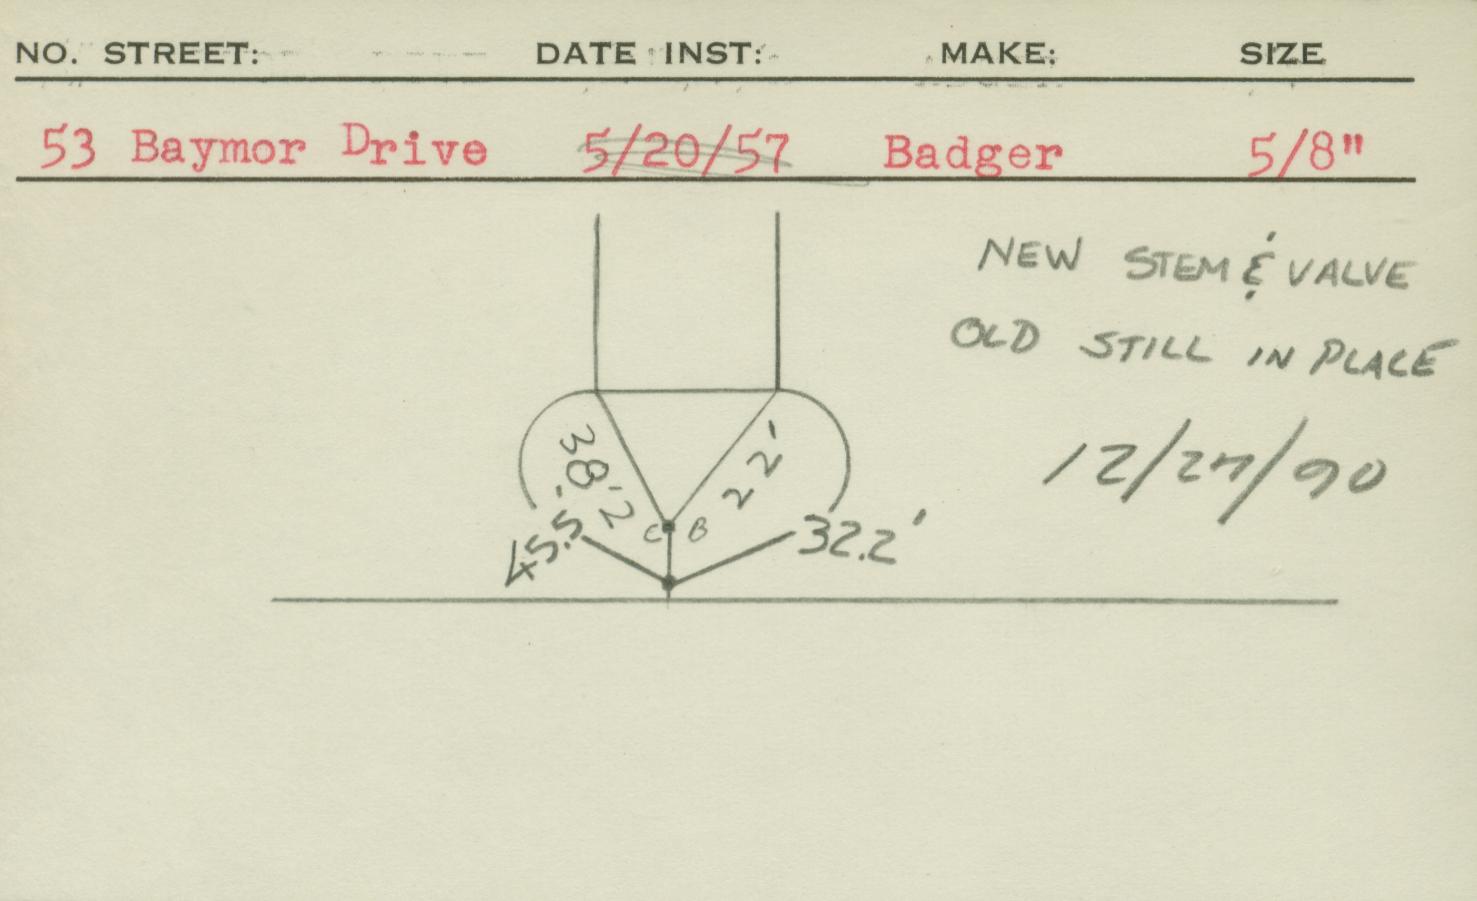 NO. STREET: DATE INST: MAKE: SIZE
53 Baymor Drive 5/20/57 Badger 5/8"
NEW STEM & VALVE
OLD STILL IN PLACE
12/27/90
38'2
22'
C B
45.5'
32.2'